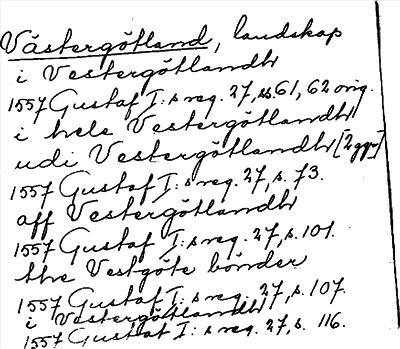 Västergötland, landskap
i Vestergötlandh
1557 Gustaf I:s reg. 27, ss. 61, 62 orig.
i hele Vestergötlandh
udi Vestergötlandh [2 ggr]
1557 Gustaf I:s reg. 27, s. 73.
aff Vestergötlandh
1557 Gustaf I:s reg. 27, s. 101.
the Vestgöte bönder
1557 Gustaf I:s reg. 27, s. 107.
i Vestergötlandh
1557 Gustaf I:s reg. 27, s. 116.